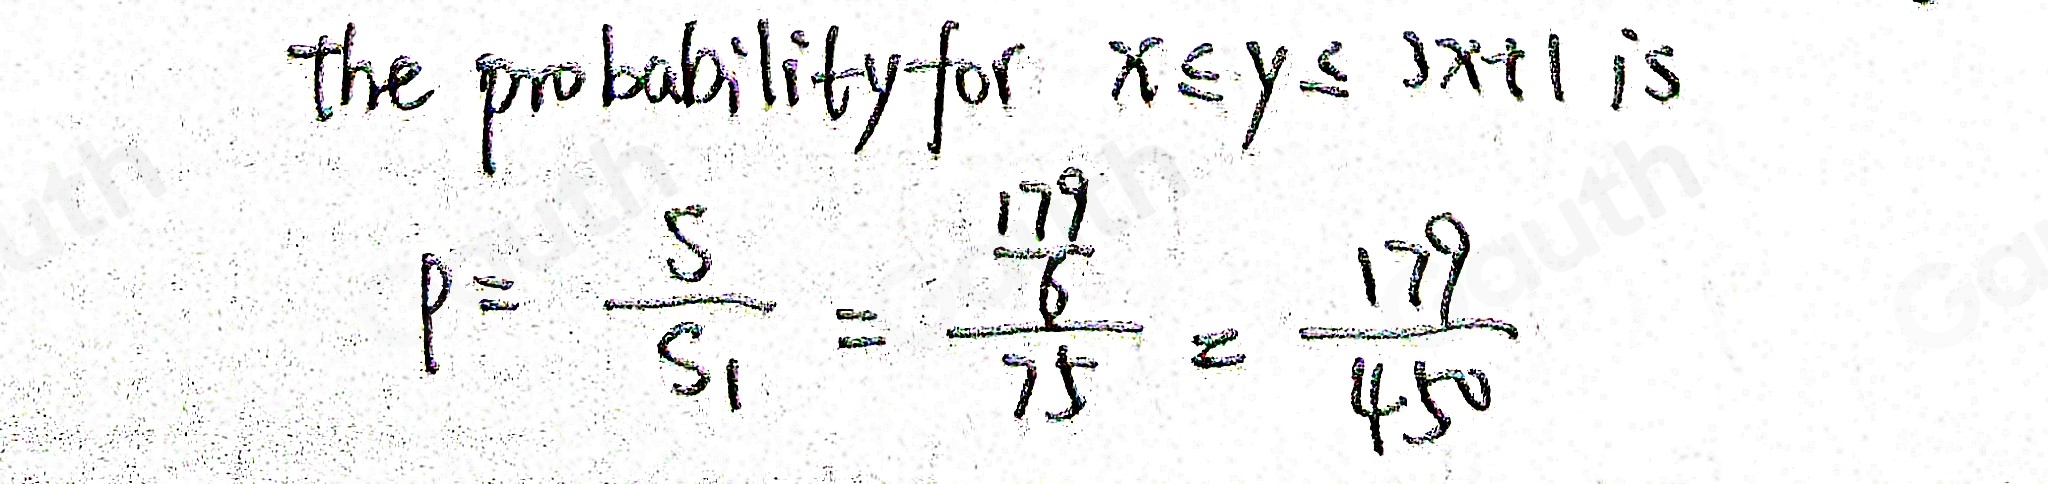 the probability for x ≤ y ≤ 3x+1 is
P = \frac{S}{S_1} = \frac{\frac{179}{6}}{75} = \frac{179}{450}